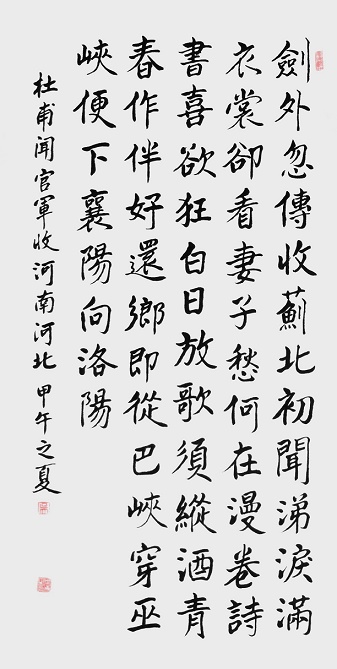 劍外忽傳收薊北初聞涕淚滿
衣裳卻看妻子愁何在漫卷詩
書喜欲狂白日放歌須縱酒青
春作伴好還鄉即從巴峽穿巫
峽便下襄陽向洛陽
杜甫聞官軍收河南河北 甲午之夏